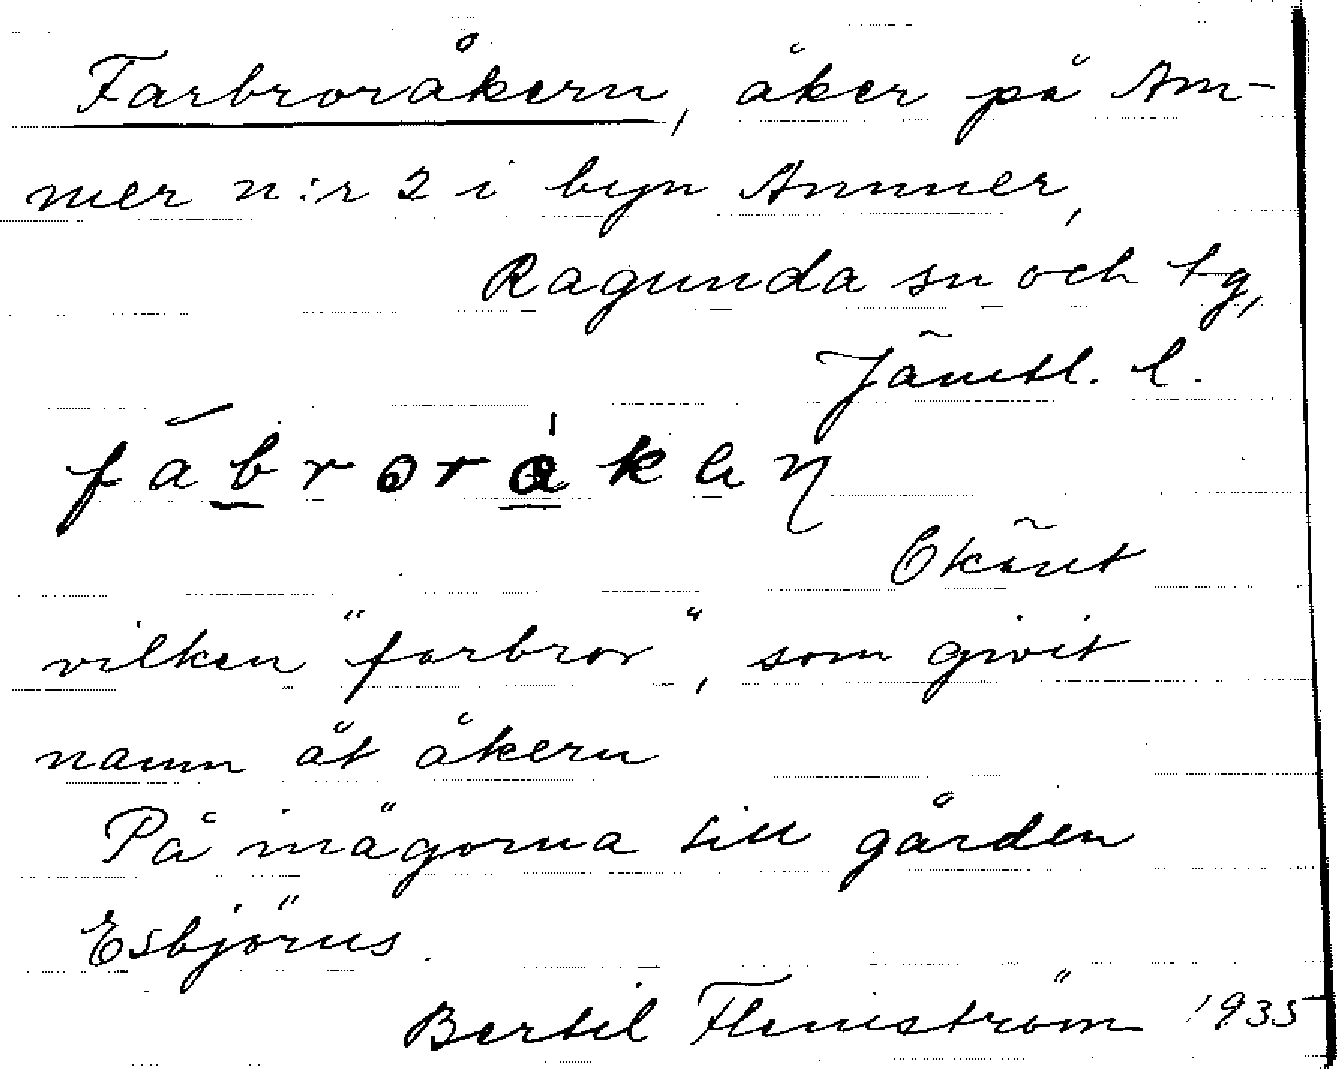 Farbroråkern, åker på Am-
mer n:r 2 i byn Ammer,
Ragunda sn och tg,
Jämtl. l.
Okänt
vilken "farbror", som givit
namn åt åkern
På inägorna till gården
Esbjörns.
Bertil Flemström 1935